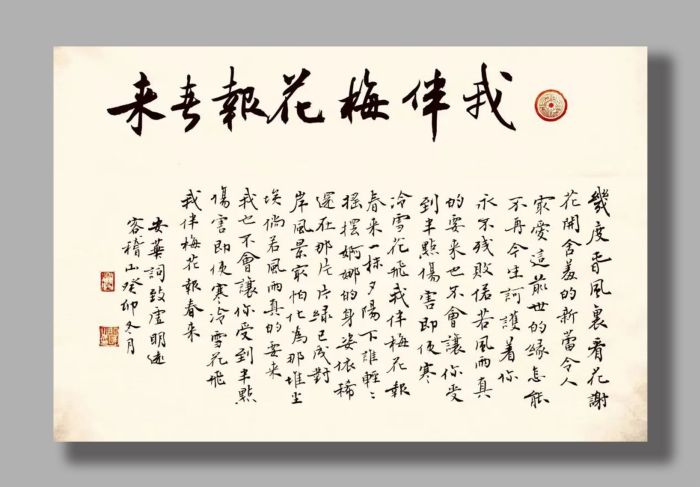 我伴梅花報春来
幾度春風裏看花謝
花開含羞的新蕾令人
最愛這前世的緣怎能
不再今生訶護着你
永不残敗倘若風雨真
的要来也不會讓你受
到半點傷害即使寒
冷雪花飛我伴梅花報
春来一抹夕陽下誰輕々
摇擺婀娜的身姿依稀
還在那片片緑已成對
岸風景最怕化為那堆尘
埃倘若風雨真的要来
我也不會讓你受到半點
傷害即使寒冷雪花飛
我伴梅花報春来
安華詞致虚明
客稽山癸卯冬月